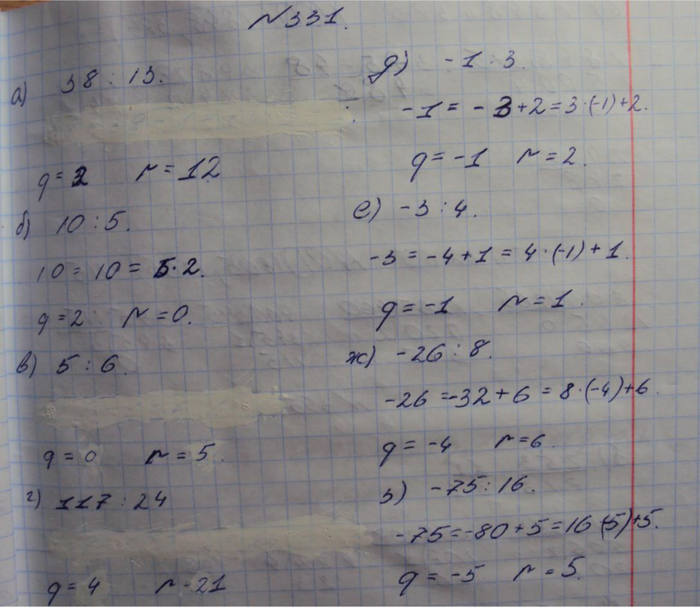 №331.
а) 38 : 13.
q = 2 r = 12
б) 10 : 5.
10 = 10 = 5·2.
q = 2 r = 0.
в) 5 : 6.
q = 0 r = 5.
г) 117 : 24
q = 4 r - 21
д) -1 : 3.
-1 = -3 + 2 = 3·(-1) + 2.
q = -1 r = 2.
е) -3 : 4.
-3 = -4 + 1 = 4·(-1) + 1.
q = -1 r = 1.
ж) -26 : 8.
-26 = -32 + 6 = 8·(-4) + 6.
q = -4 r = 6.
з) -75 : 16.
-75 = -80 + 5 = 16·(-5) + 5.
q = -5 r = 5.